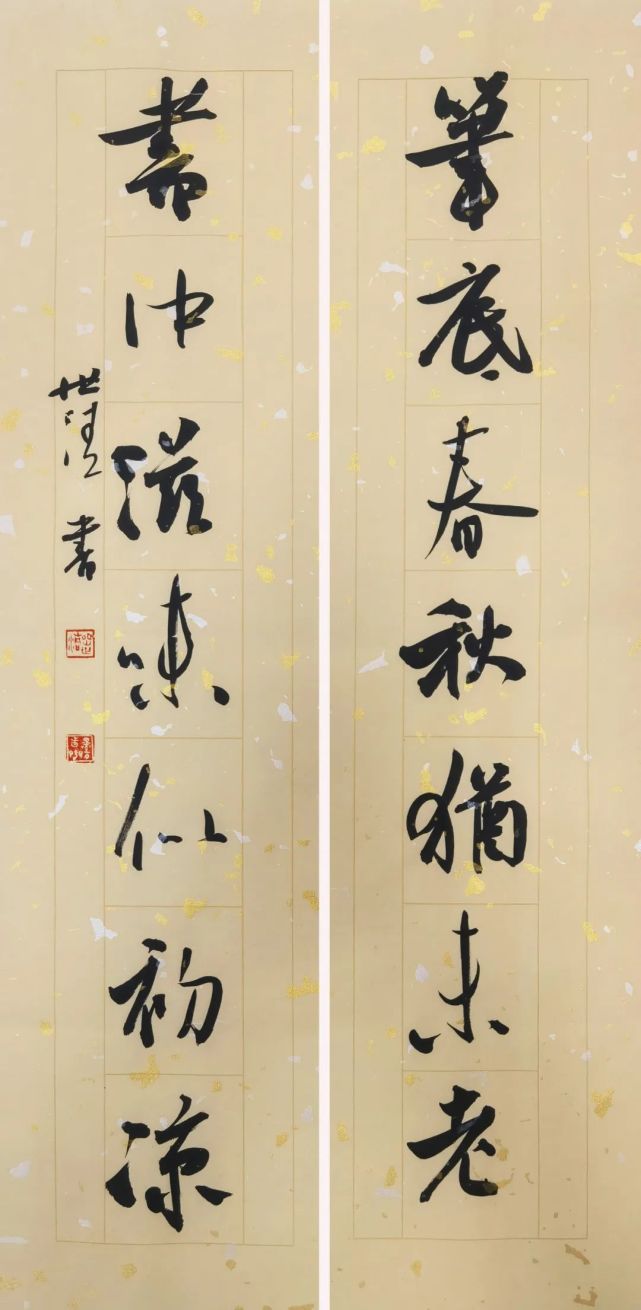 筆底春秋猶未老
書中滋味似初涼
世 書